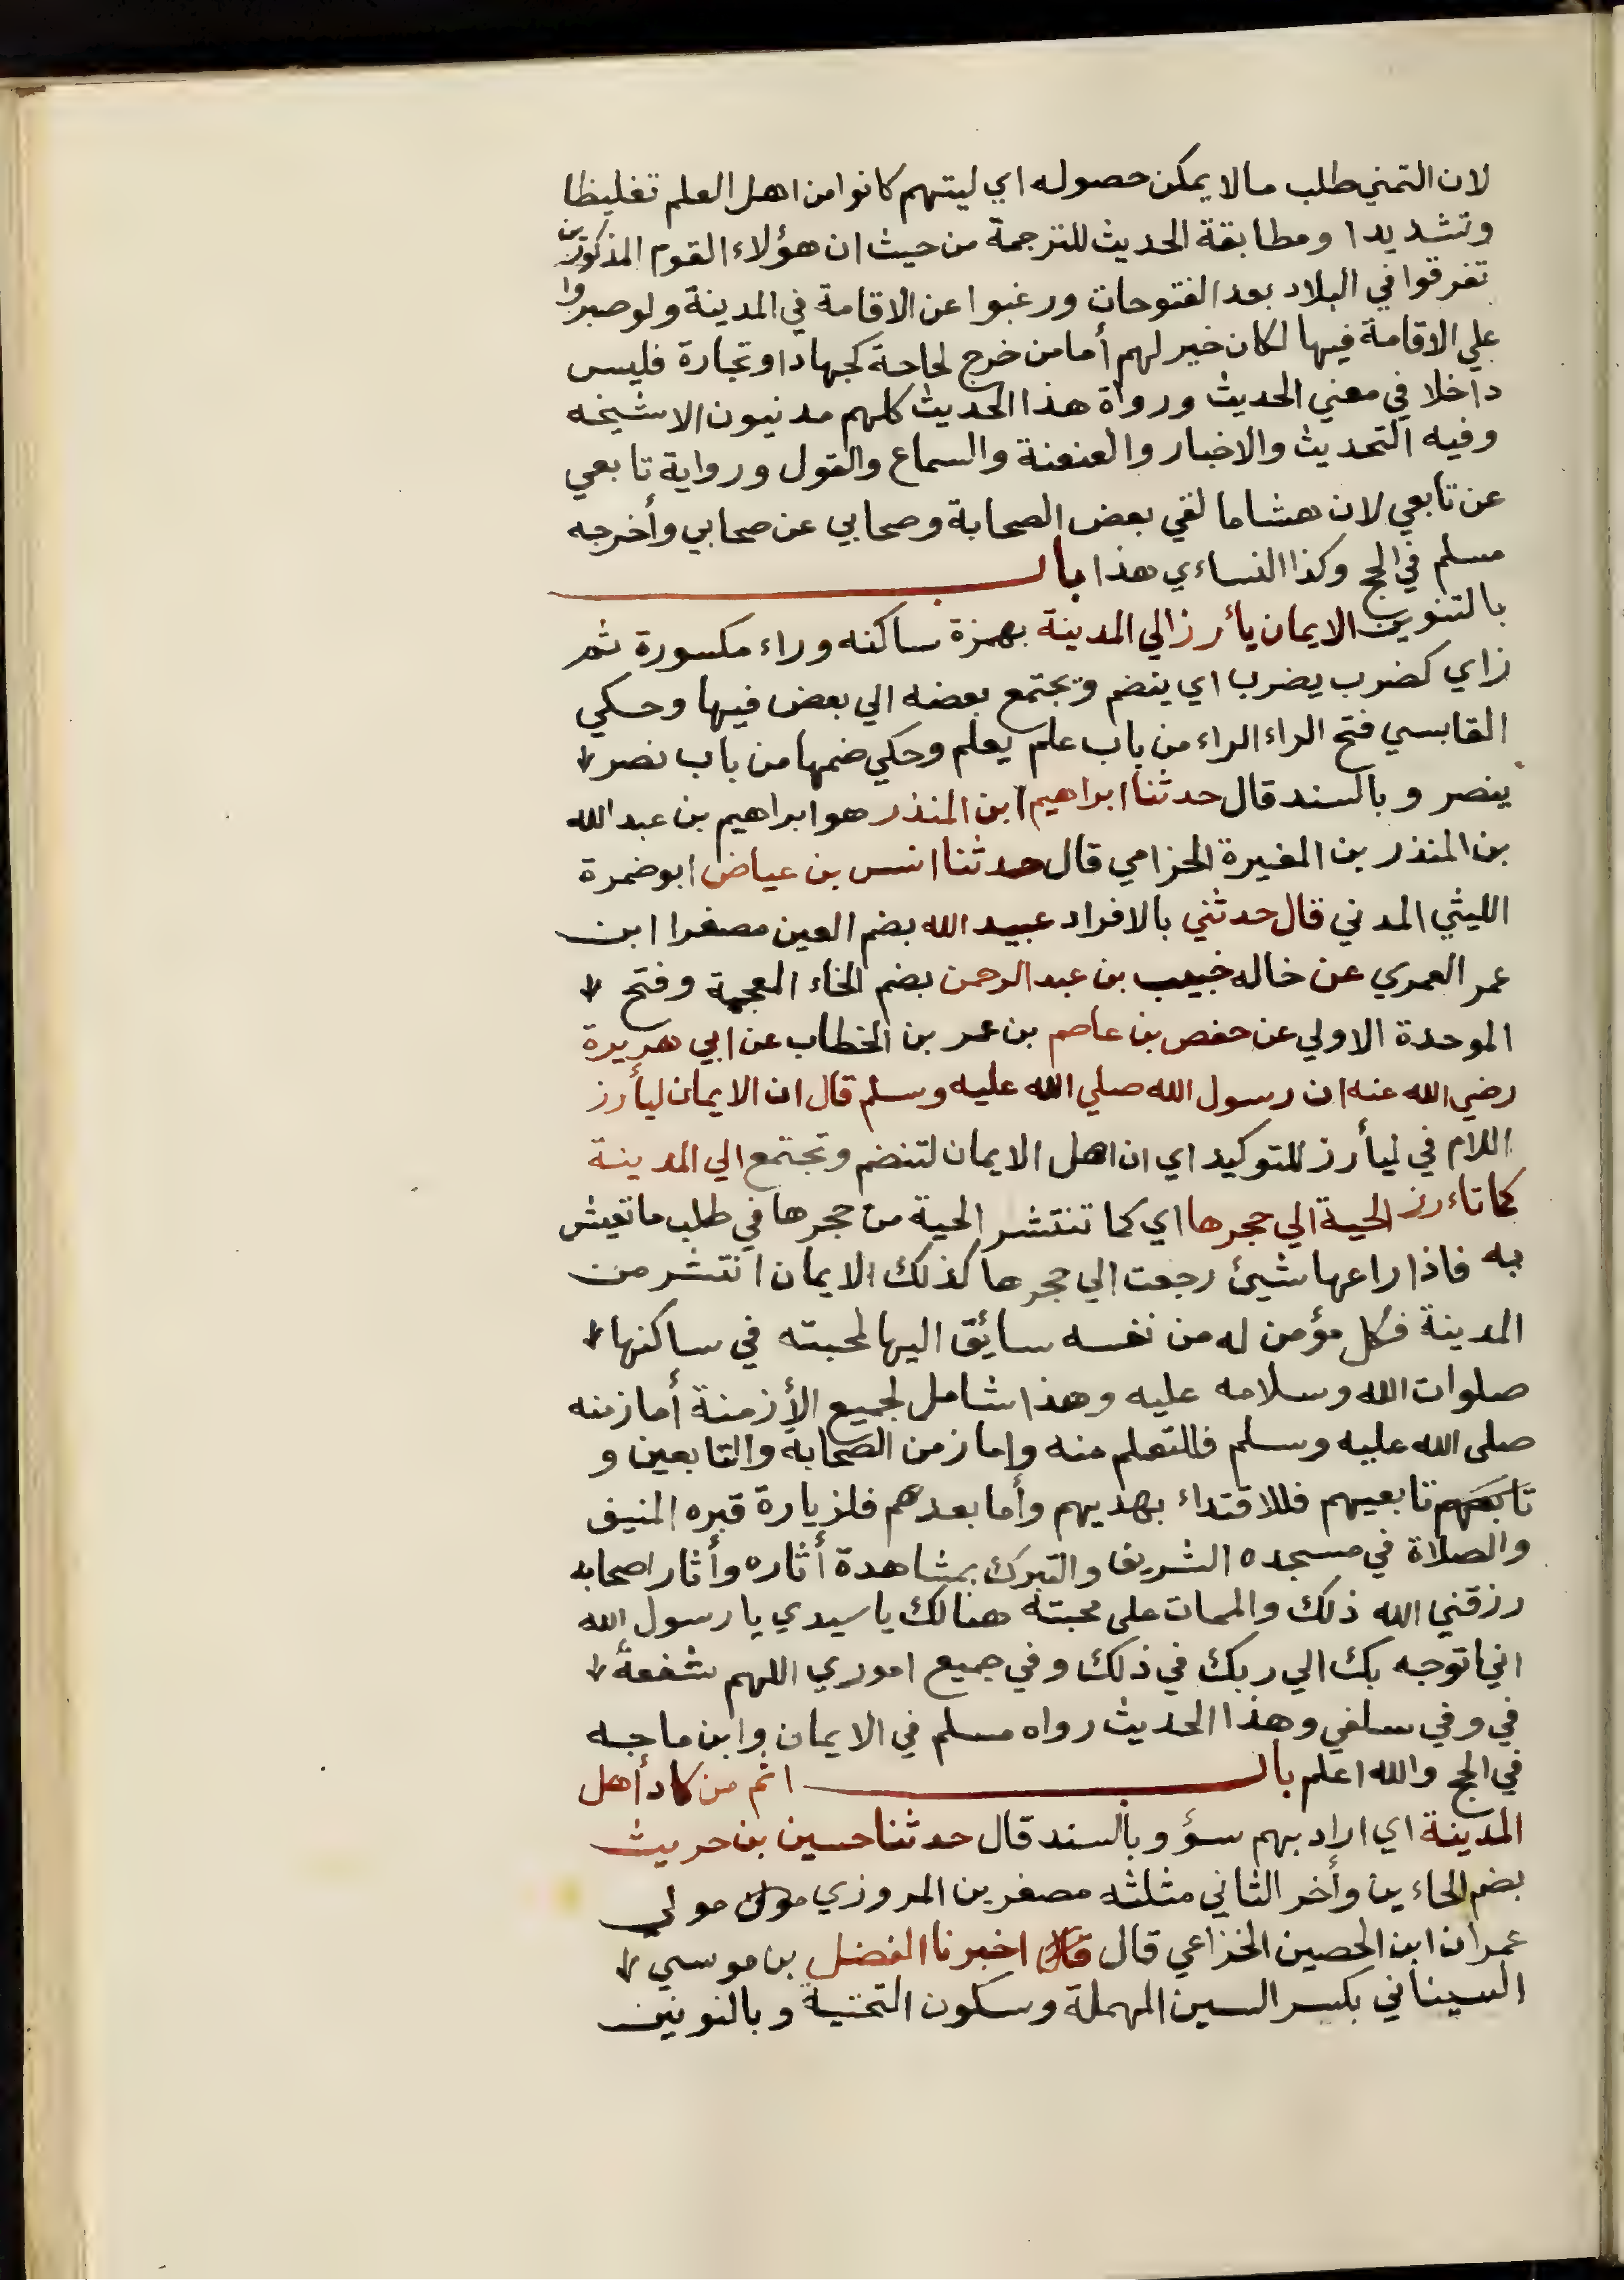 لان التمني طلب مالا يمكن حصوله اي ليتهم كانوا من اهل العلم تغليظا
وتشديدا ومطابقة الحديث للترجمة من حيث ان هؤلاء القوم المذكورين
تفرقوا في البلاد بعد الفتوحات ورغبوا عن الاقامة في المدينة ولو صبروا
علي الاقامة فيها لكان خير لهم أما من خرج لحاحة كجهاد او تجارة فليس
داخلا في معني الحديث ورواة هذا الحديث كلهم مدنيون الا شيخه
وفيه التحديث والاخبار والعنعنة والسماع والقول ورواية تابعي
عن تابعي لان هشاما لقي بعض الصحابة وصحابي عن صحابي وأخرجه
مسلم في الحج وكذا النساءي هذا باب
بالتنوين الايمان يأرز الي المدينة بهمزة ساكنه وراء مكسورة ثم
زاي كضرب يضرب اي ينضم ويجتمع بعضه الي بعض فيها وحكي
القابسي فتح الراء الراء من باب علم يعلم وحكي ضمها من باب نصر
ينصر وبالسند قال حدثنا ابراهيم ابن المنذر هو ابراهيم بن عبد الله
بن المنذر بن المغيرة الحزامي قال حدثنا انس بن عياض ابو ضمرة
الليثي المدني قال حدثني بالافراد عبيد الله بضم العين مصغرا ابن
عمر العمري عن خاله خبيب بن عبد الرحمن بضم الخاء المعجمة وفتح
الموحدة الاولي عن حفص بن عاصم بن عمر بن الخطاب عن ابي هريرة
رضي الله عنه ان رسول الله صلي الله عليه وسلم قال ان الايمان ليأرز
اللام في ليأرز للتوكيد اي ان اهل الايمان لتنضم وتجتمع الي المدينة
كما تاءرز الحية الي حجرها اي كما تنتشر الحية من حجرها في طلب ما تعيش
به فاذا راعها شيئ رجعت الي حجرها كذلك الايمان انتشر من
المدينة فكل مؤمن له من نفسه سائق اليها لمحبته في ساكنها
صلوات الله وسلامه عليه وهذا شامل لجميع الأزمنة أما زمنه
صلى الله عليه وسلم فللتعلم منه واما زمن الصحابة والتابعين و
تابعيهم فللاقتداء بهديهم وأما بعدهم فلزيارة قبره المنيف
والصلاة في مسجده الشريف والتبرك بمشاهدة أثاره وأثار اصحابه
رزقني الله ذلك والممات على محبته هنالك يا سيدي يا رسول الله
اني اتوجه بك الي ربك في ذلك وفي جميع اموري اللهم شفعه
في وفي سلفي وهذا الحديث رواه مسلم في الايمان وابن ماجه
في الحج والله اعلم باب اثم من كاد أهل
المدينة اي اراد بهم سؤ وبالسند قال حدثنا حسين بن حريث
بضم الحاءين وأخر الثاني مثلثه مصغرين المروزي مولى
عمران ابن الحصين الخزاعي قال اخبرنا الفضل بن موسي
السيناني بكسر السين المهملة وسكون التحتية وبالنونين